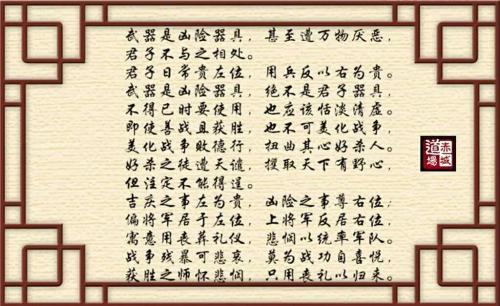 武器是凶险器具， 甚至遭万物厌恶，
君子不与之相处。
君子日常贵左位， 用兵反以右为贵。
武器是凶险器具， 绝不是君子器具，
不得已时要使用， 也应该恬淡清虚。
即使善战且获胜， 也不可美化战争，
美化战争败德行， 扭曲其心好杀人。
好杀之徒遭天谴， 攫取天下有野心，
但注定不能得逞。
吉庆之事左为贵， 凶险之事尊右位；
偏将军居于左位， 上将军反居右位，
寓意用丧葬礼仪， 悲悯以统率军队。
战争残暴可悲哀， 莫为战功自喜悦，
获胜之师怀悲悯， 只用丧礼以归来。
赤城
道場